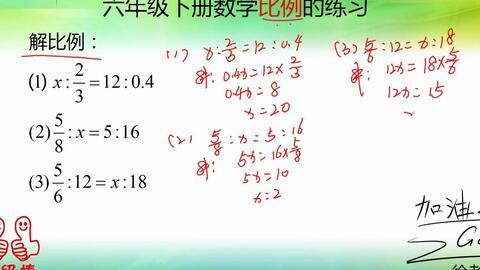 六年级下册数学比例的练习
解比例：
(1) x:2/3=12:0.4
(2) 5/8:x=5:16
(3) 5/6:12=x:18
(1) x:2/3=12:0.4
解: 0.4x=12×2/3
0.4x=8
x=20
(2) 5/8:x=5:16
解: 5x=16×5/8
5x=10
x=2
(3) 5/6:12=x:18
解: 12x=18×5/6
12x=15
加油